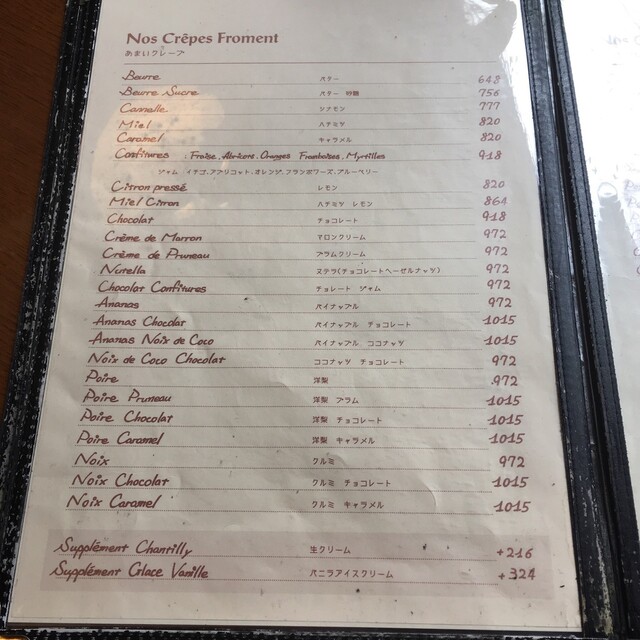 Nos Crêpes Froment
あまいクレープ
Beurre バター 648
Beurre Sucre バター 砂糖 756
Cannelle シナモン 777
Miel ハチミツ 820
Caramel キャラメル 820
Confitures : Fraise, Abricots, Oranges Framboises, Myrtilles 918
ジャム・イチゴ、アプリコット、オレンジ、フランボワーズ、ブルーベリー
Citron pressé レモン 820
Miel Citron ハチミツ レモン 864
Chocolat チョコレート 918
Crème de Marron マロンクリーム 972
Crème de Pruneau プラムクリーム 972
Nutella ヌテラ(チョコレートヘーゼルナッツ) 972
Chocolat Confitures チョコレート ジャム 972
Ananas パイナップル 972
Ananas Chocolat パイナップル チョコレート 1015
Ananas Noix de Coco パイナップル ココナッツ 1015
Noix de Coco Chocolat ココナッツ チョコレート 972
Poire 洋梨 972
Poire Pruneau 洋梨 プラム 1015
Poire Chocolat 洋梨 チョコレート 1015
Poire Caramel 洋梨 キャラメル 1015
Noix クルミ 972
Noix Chocolat クルミ チョコレート 1015
Noix Caramel クルミ キャラメル 1015
Supplément Chantilly 生クリーム +216
Supplément Glace Vanille バニラアイスクリーム +324